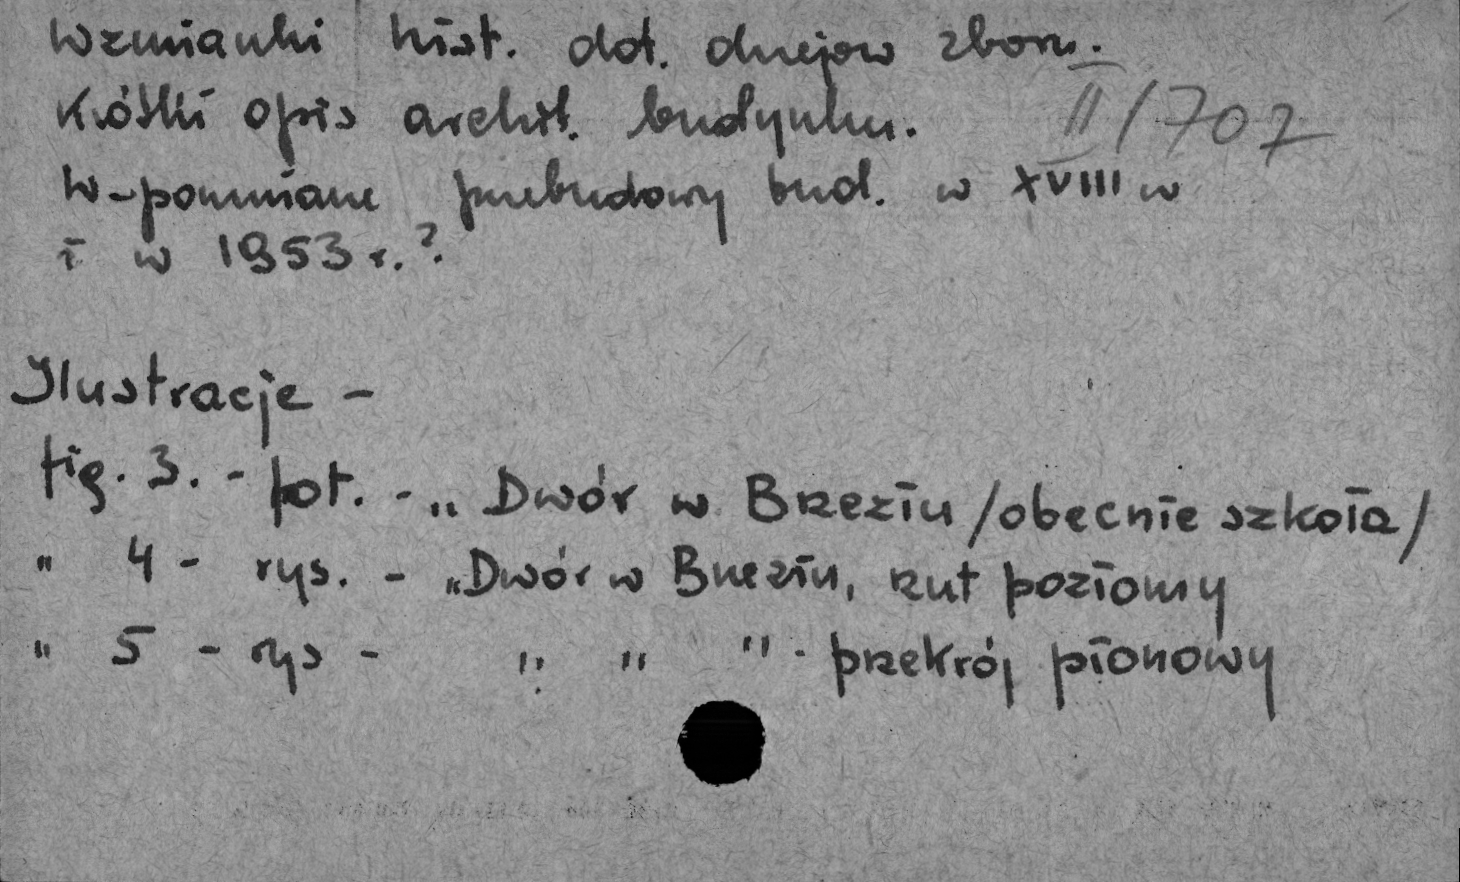 Wzmianki hist. dot. dziejów zboru.
Krótki opis archit. budynku. II/707
W-pomniane przebudowy bud. w XVIII w
i w 1953 r.?
Ilustracje -
fig. 3. - fot. - „Dwór w Brzeziu /obecnie szkoła/
" 4 - rys. - „Dwór w Brzeziu, rzut poziomy
" 5 - rys - " " " - przekrój pionowy